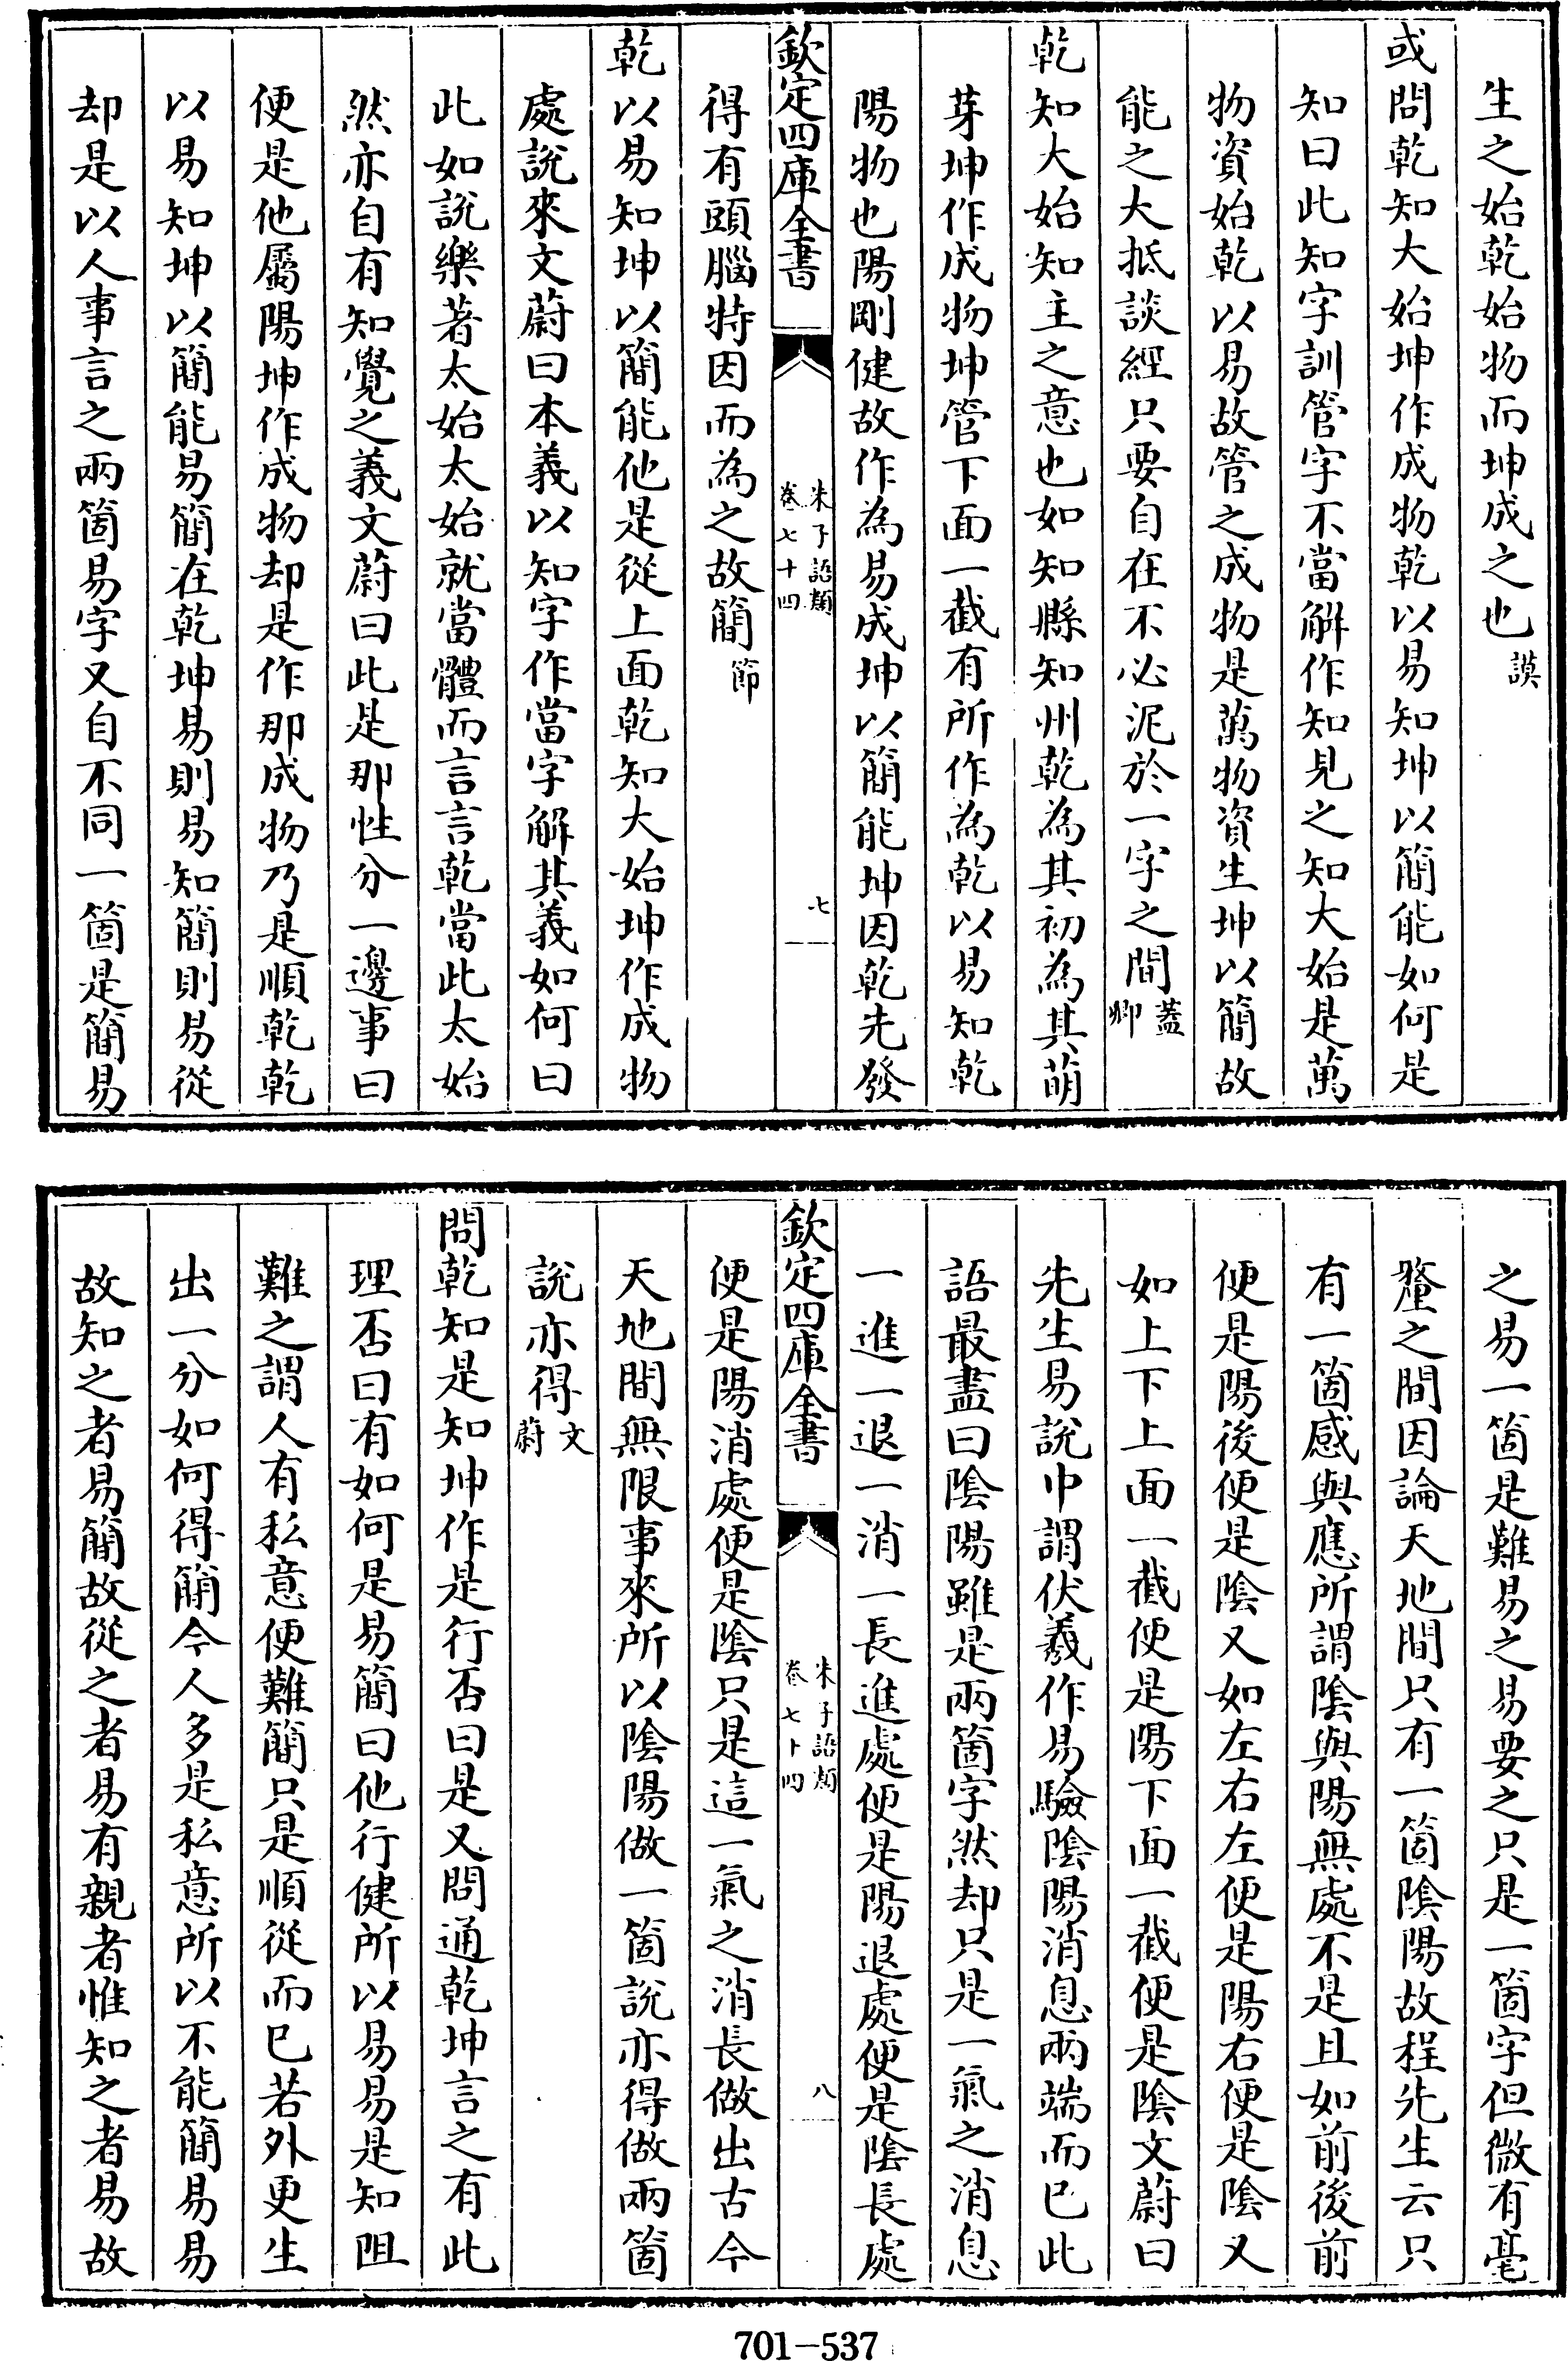 生之始乾始物而坤成之也謨
或問乾知大始坤作成物乾以易知坤以簡能如何是
知曰此知字訓管字不當解作知見之知大始是萬
物資始乾以易故管之成物是萬物資生坤以簡故
能之大抵談經只要自在不必泥於一字之間蓋卿
乾知大始知主之意也如知縣知州乾為其初為其萌
芽坤作成物坤管下面一截有所作為乾以易知乾
陽物也陽剛健故作為易成坤以簡能坤因乾先發
欽定四庫全書
朱子語類
卷七十四
七
得有頭腦特因而為之故簡節
乾以易知坤以簡能他是從上面乾知大始坤作成物
處說來文蔚曰本義以知字作當字解其義如何曰
此如說樂著太始太始就當體而言言乾當此太始
然亦自有知覺之義文蔚曰此是那性分一邊事曰
便是他屬陽坤作成物却是作那成物乃是順乾乾
以易知坤以簡能易簡在乾坤易則易知簡則易從
却是以人事言之兩箇易字又自不同一箇是簡易
之易一箇是難易之易要之只是一箇字但微有毫
釐之間因論天地間只有一箇陰陽故程先生云只
有一箇感與應所謂陰與陽無處不是且如前後前
便是陽後便是陰又如左右左便是陽右便是陰又
如上下上面一截便是陽下面一截便是陰文蔚曰
先生易說中謂伏羲作易驗陰陽消息兩端而已此
語最盡曰陰陽雖是兩箇字然却只是一氣之消息
一進一退一消一長進處便是陽退處便是陰長處
欽定四庫全書
朱子語類
卷七十四
八
便是陽消處便是陰只是這一氣之消長做出古今
天地間無限事來所以陰陽做一箇說亦得做兩箇
說亦得文蔚
問乾知是知坤作是行否曰是又問通乾坤言之有此
理否曰有如何是易簡曰他行健所以易易是知阻
難之謂人有私意便難簡只是順從而已若外更生
出一分如何得簡今人多是私意所以不能簡易易
故知之者易簡故從之者易有親者惟知之者易故
701-537